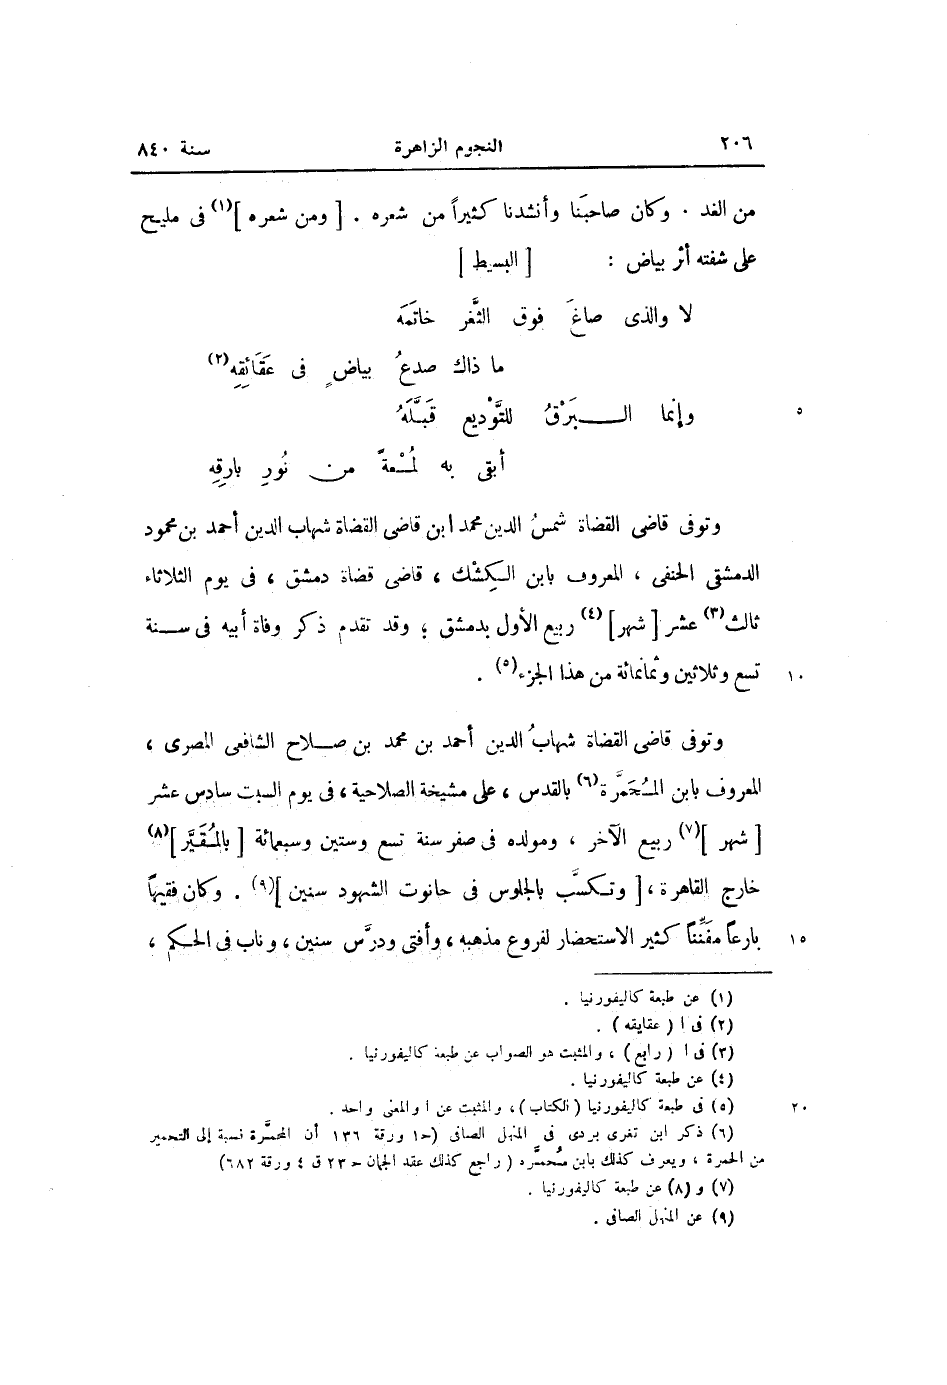 ٢٠٦ النجوم الزاهرة سنة ٨٤٠
من الغد . وكان صاحبَنا وأنشدنا كثيراً من شعره . [ ومن شعره ](١) فى مليح
على شفته أثر بياض : [ البسيط ]
لا والذى صاغَ فوق الثَّغر خاتَمَه
ما ذاك صدعُ بياضٍ فى عَقَائِقِه(٢)
٥ وإنما البَرْقُ للتَّوْديع قَبَّلَهُ
أبقى به لُمْعةً من نُورِ بارقِه
وتوفى قاضى القضاة شمسُ الدين محمد ابن قاضى القضاة شهاب الدين أحمد بن محمود
الدمشقى الحنفى ، المعروف بابن الكِشْك ، قاضى قضاة دمشق ، فى يوم الثلاثاء
ثالث(٣) عشر [ شهر ](٤) ربيع الأول بدمشق ؛ وقد تقدم ذكر وفاة أبيه فى سنة
١٠ تسع وثلاثين وثمانمائة من هذا الجزء(٥) .
وتوفى قاضى القضاة شهابُ الدين أحمد بن محمد بن صلاح الشافعى المصرى ،
المعروف بابن المُحَمَّرة(٦) بالقدس ، على مشيخة الصلاحية ، فى يوم السبت سادس عشر
[ شهر ](٧) ربيع الآخر ، ومولده فى صفر سنة تسع وستين وسبعمائة [ بالمُقَيَّر ](٨)
خارج القاهرة ، [ وتكسَّب بالجلوس فى حانوت الشهود سنين ](٩) . وكان فقيهاً
١٥ بارعاً مفَنِّناً كثير الاستحضار لفروع مذهبه ، وأفتى ودرَّس سنين ، وناب فى الحكم ،
(١) عن طبعة كاليفورنيا .
(٢) فى ا ( عقايقه ) .
(٣) فى ا ( رابع ) ، والمثبت هو الصواب عن طبعة كاليفورنيا .
(٤) عن طبعة كاليفورنيا .
٢٠ (٥) فى طبعة كاليفورنيا (الكتاب) ، والمثبت عن ا والمعنى واحد .
(٦) ذكر ابن تغرى بردى فى المنهل الصافى (ح١ ورقة ١٣٦ أن المحمَّرة نسبة إلى التحمير
من الحمرة ، ويعرف كذلك بابن مُحمَّره ( راجع كذلك عقد الجمان ح ٢٣ ق ٤ ورقة ٦٨٢)
(٧) و (٨) عن طبعة كاليفورنيا .
(٩) عن المنهل الصافى .